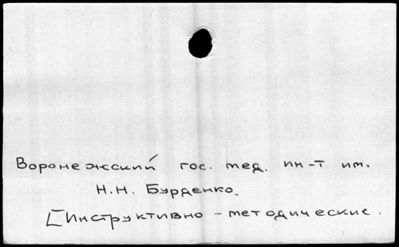 Воронежский гос. мед. ин-т им.
Н.Н. Бурденко.
[Инструктивно-методические.